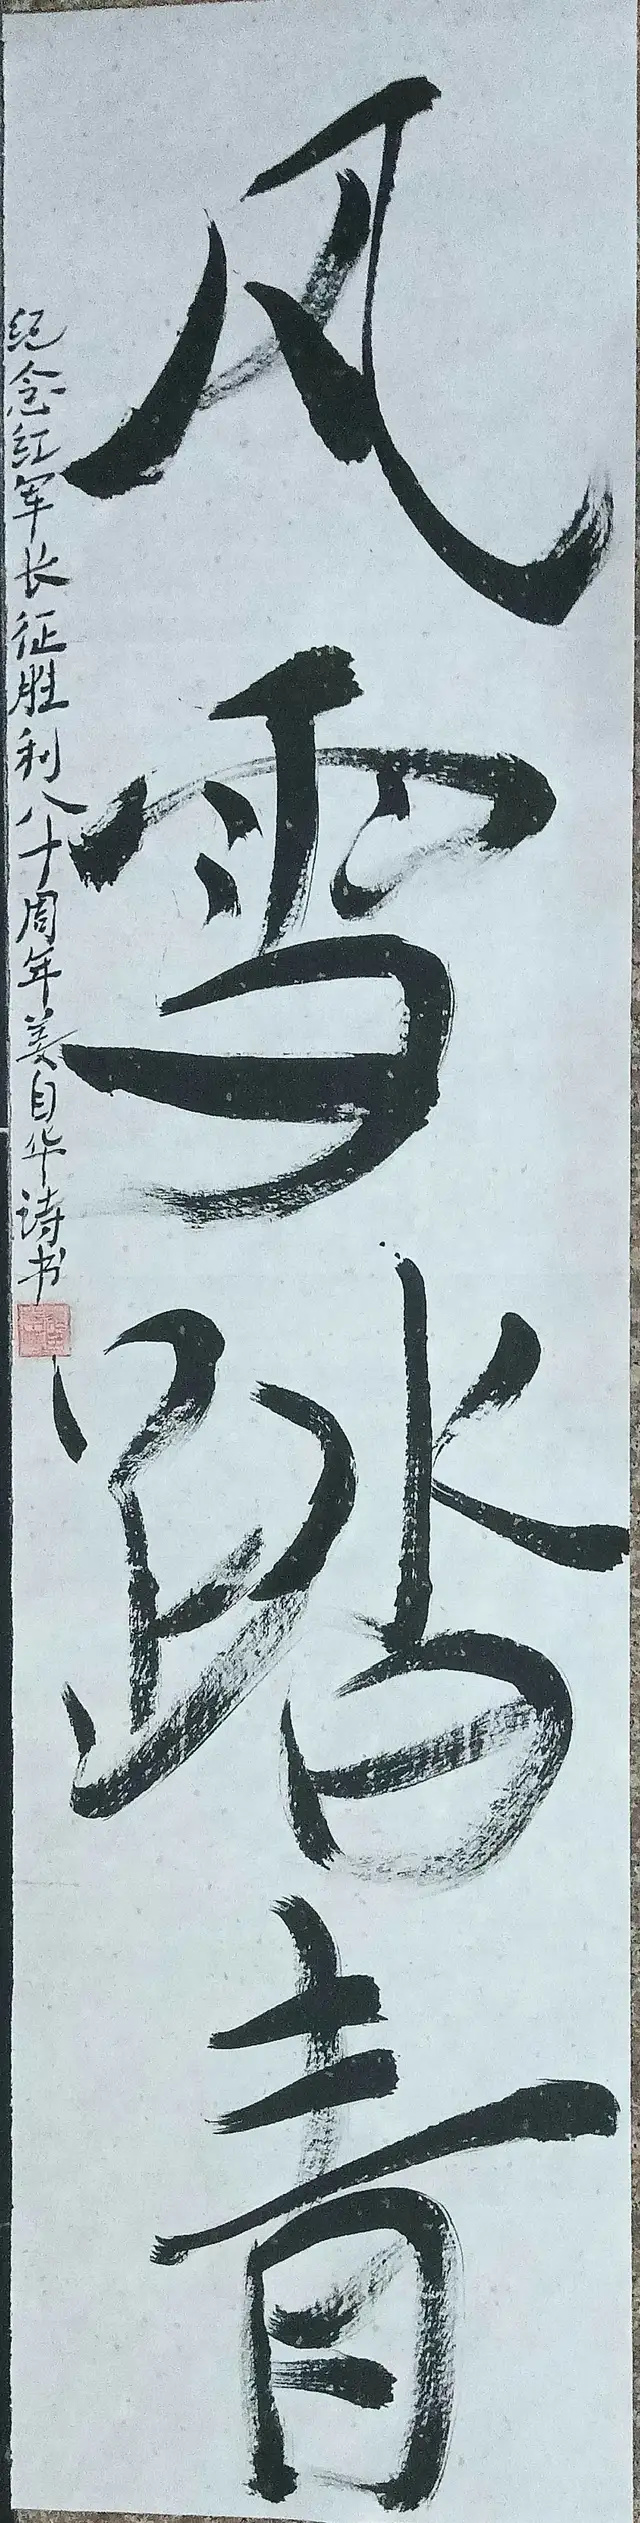 风雪踏青
纪念红军长征胜利八十周年姜自华诗书